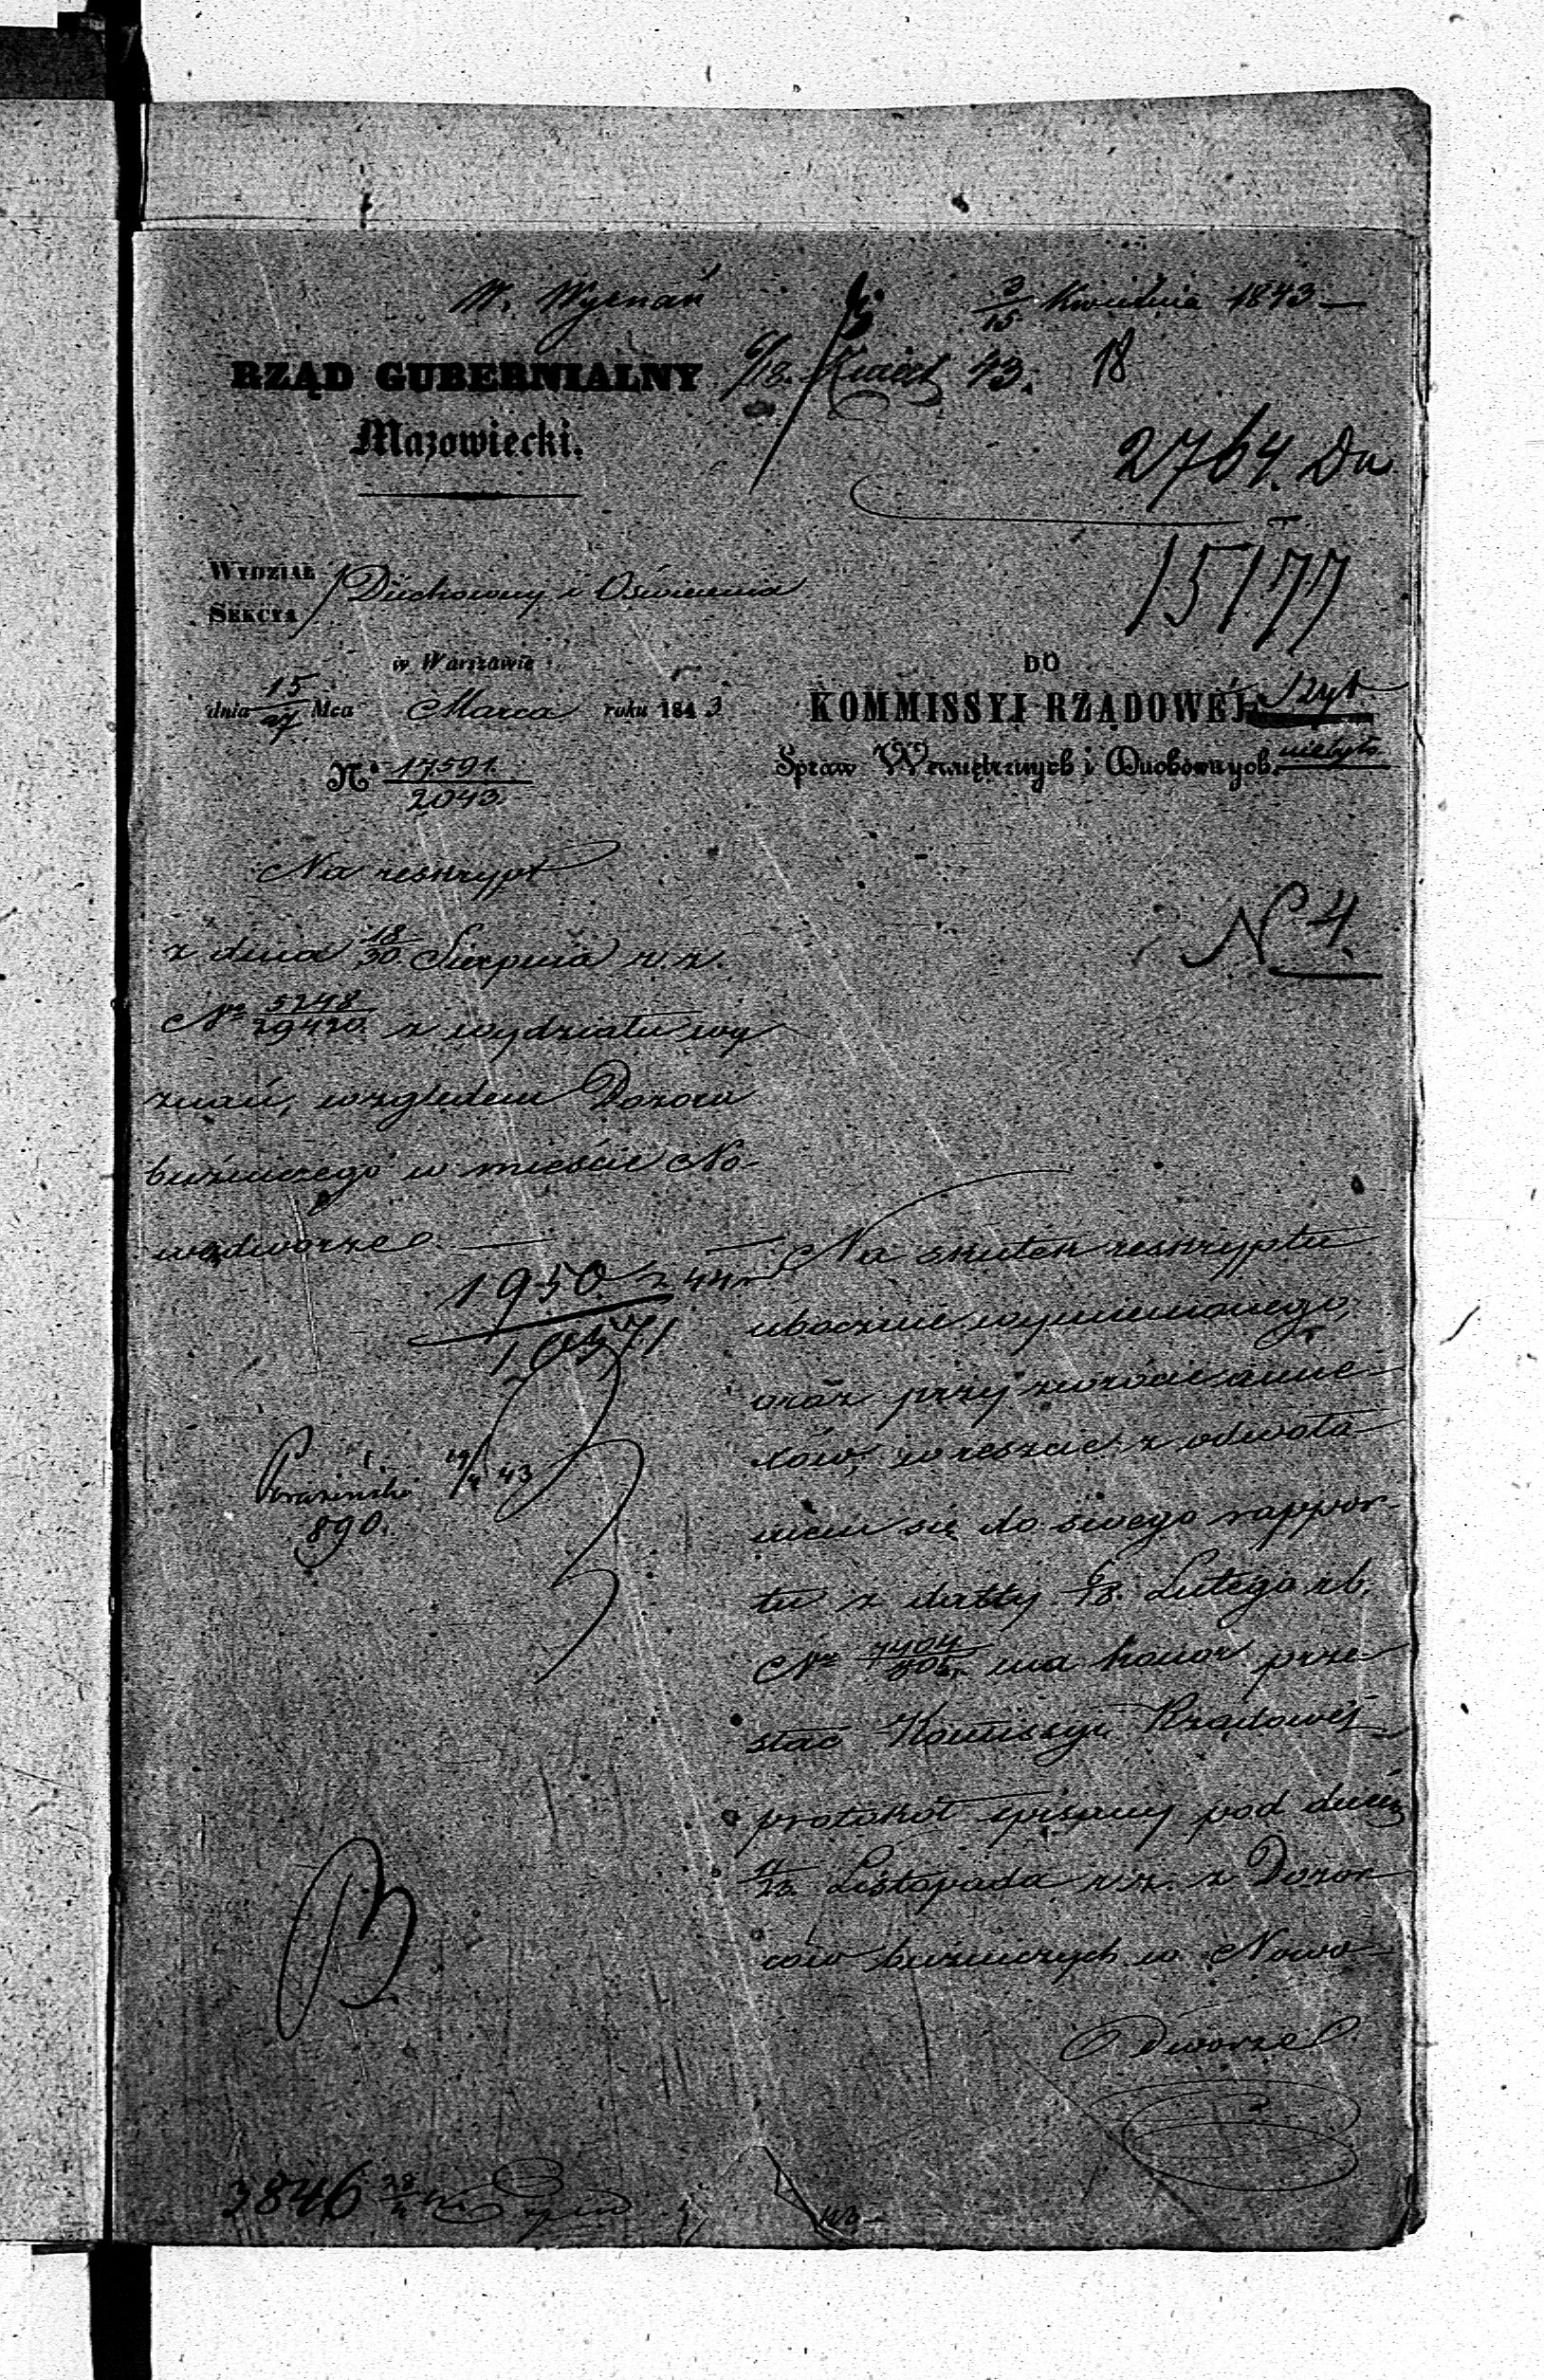 W. Wyznań
3/15 Kwietnia 1843
RZĄD GUBERNIALNY
6/18. Kwiet 43. 18
Mazowiecki.
2764. Du
15177
WYDZIAŁ
SEKCYA
Duchowny i Oświecenia
w Warszawie
dnia 15/27 Mca Marca roku 1843
No 17591/2043.
DO
KOMMISSYI RZĄDOWÉJ
Spraw Wewnętrznych i Duchownych.
N 4.
Na reskrypt
z dnia 18/30 Sierpnia r. z.
No 5248/29420 z wydziału wy
znań, względem Dozoru
bużniczego w mieście No-
wodworze
1950 z 44r
890.
Na skutek reskryptu
ubocznie wymienionego,
oraz przy zwrocie anne
xów, wreszcie z odwoła
niem się do swego rappor-
tu z datty 6/18. Lutego r.b.
Nr ma honor prze
słać Kommissyi Rządowéj
protokół spisany pod dniem
11/23. Listopada r.z. z Dozor
ców bużniczych w Nowo
Dworze
3846